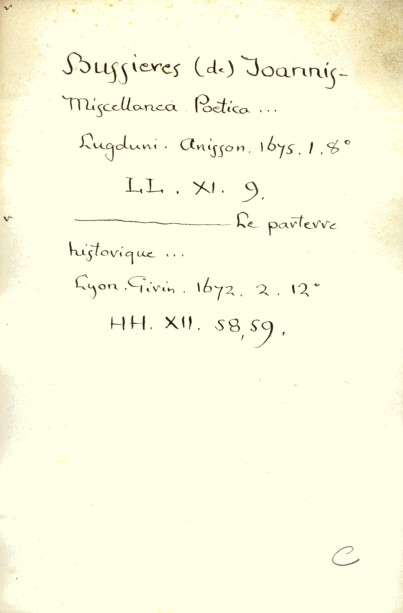 Bussieres (de) Joannis-
Miscellanea Poetica ...
Lugduni. Anisson. 1675. 1. 8°
LL. XI. 9.
——— Le parterre
historique ...
Lyon. Girin. 1672. 2. 12°
HH. XII. 58,59.
C